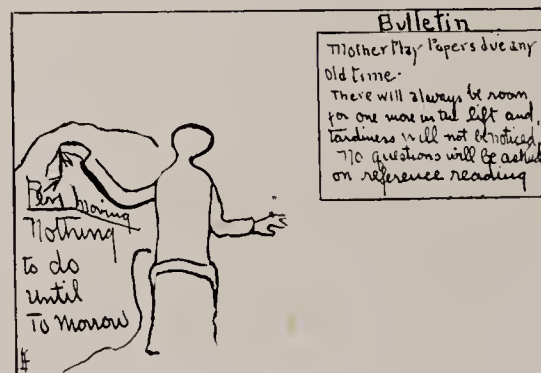 Bulletin
Mother Play Papers due any
old time.
There will always be room
for one more in the lift and,
tardiness will not be noticed
No questions will be asked
on reference reading
Pen moving
Nothing
to do
until
To Morrow